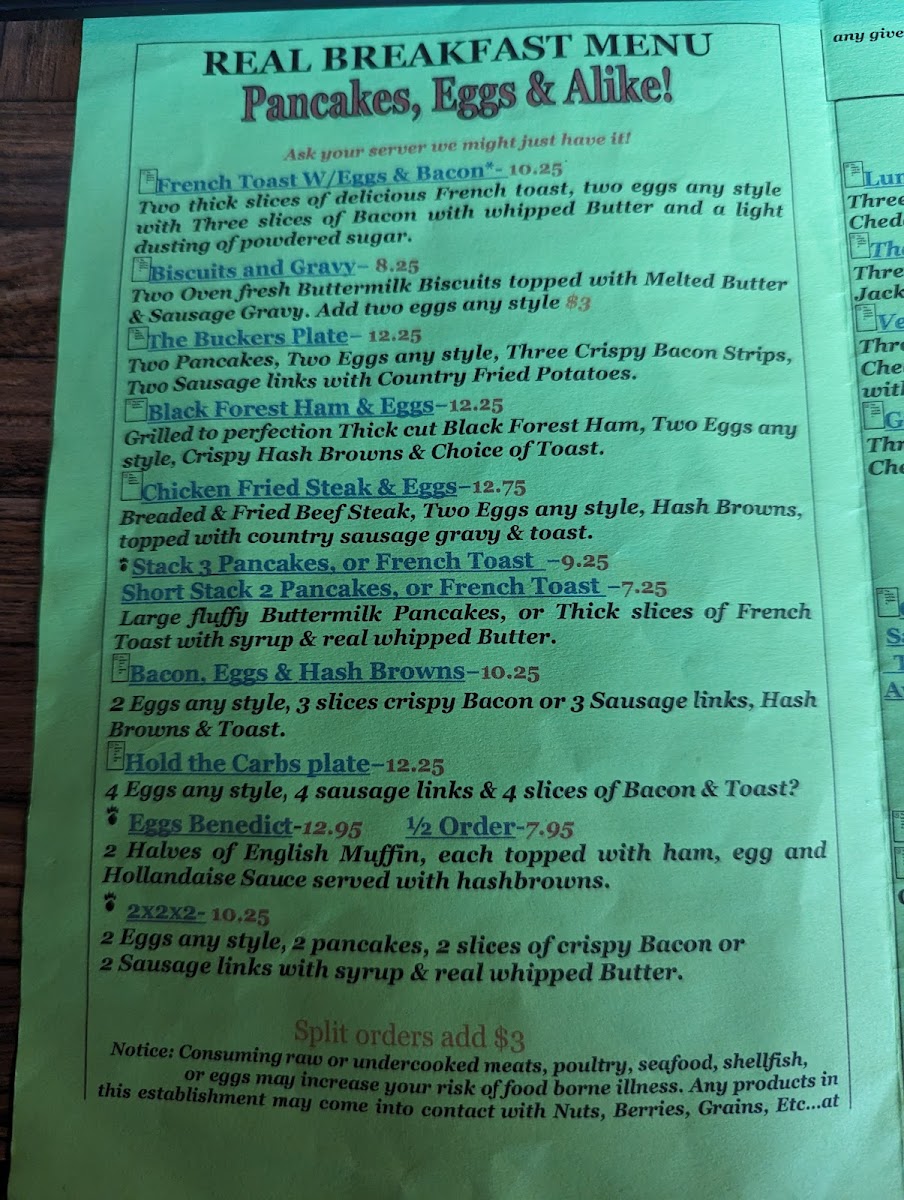 REAL BREAKFAST MENU
Pancakes, Eggs & Alike!
Ask your server we might just have it!
French Toast W/Eggs & Bacon*- 10.25
Two thick slices of delicious French toast, two eggs any style
with Three slices of Bacon with whipped Butter and a light
dusting of powdered sugar.
Biscuits and Gravy– 8.25
Two Oven fresh Buttermilk Biscuits topped with Melted Butter
& Sausage Gravy. Add two eggs any style $3
The Buckers Plate– 12.25
Two Pancakes, Two Eggs any style, Three Crispy Bacon Strips,
Two Sausage links with Country Fried Potatoes.
Black Forest Ham & Eggs–12.25
Grilled to perfection Thick cut Black Forest Ham, Two Eggs any
style, Crispy Hash Browns & Choice of Toast.
Chicken Fried Steak & Eggs–12.75
Breaded & Fried Beef Steak, Two Eggs any style, Hash Browns,
topped with country sausage gravy & toast.
Stack 3 Pancakes, or French Toast –9.25
Short Stack 2 Pancakes, or French Toast –7.25
Large fluffy Buttermilk Pancakes, or Thick slices of French
Toast with syrup & real whipped Butter.
Bacon, Eggs & Hash Browns–10.25
2 Eggs any style, 3 slices crispy Bacon or 3 Sausage links, Hash
Browns & Toast.
Hold the Carbs plate–12.25
4 Eggs any style, 4 sausage links & 4 slices of Bacon & Toast?
Eggs Benedict-12.95 ½ Order-7.95
2 Halves of English Muffin, each topped with ham, egg and
Hollandaise Sauce served with hashbrowns.
2x2x2- 10.25
2 Eggs any style, 2 pancakes, 2 slices of crispy Bacon or
2 Sausage links with syrup & real whipped Butter.
Split orders add $3
Notice: Consuming raw or undercooked meats, poultry, seafood, shellfish,
or eggs may increase your risk of food borne illness. Any products in
this establishment may come into contact with Nuts, Berries, Grains, Etc...at
any give
Lun
Three
Chedd
The
Thre
Jack
Ve
Thre
Che
with
G
Thr
Che
Sa
T
A